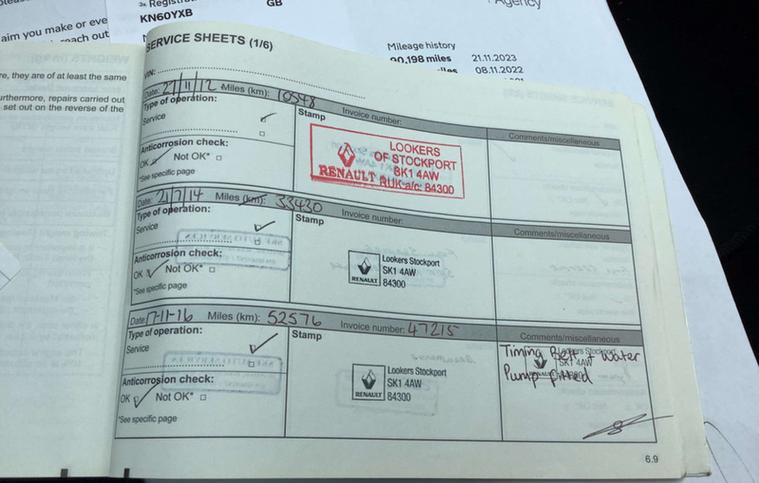 3a Registra
KN60YXB
GB
Agency
aim you make or eve
each out
Mileage history
90,198 miles 21.11.2023
les 08.11.2022
re, they are of at least the same
urthermore, repairs carried out
set out on the reverse of the
SERVICE SHEETS (1/6)
VIN:
Date: 27/11/12 Miles (km): 10548 Invoice number: Comments/miscellaneous
Type of operation: Stamp
Service
Anticorrosion check:
OK Not OK*
*See specific page
LOOKERS
OF STOCKPORT
SK1 4AW
RENAULT RUK a/c: 84300
Date: 21/7/14 Miles (km): 33430 Invoice number: Comments/miscellaneous
Type of operation: Stamp
Service
Anticorrosion check:
OK Not OK*
*See specific page
Lookers Stockport
SK1 4AW
RENAULT 84300
Date: 17-11-16 Miles (km): 52576 Invoice number: 47215 Comments/miscellaneous
Type of operation: Stamp
Service
Anticorrosion check:
OK Not OK*
*See specific page
Lookers Stockport
SK1 4AW
RENAULT 84300
Timing Belt + Water
Pump fitted
Lookers Stockport
SK1 4AW
6.9